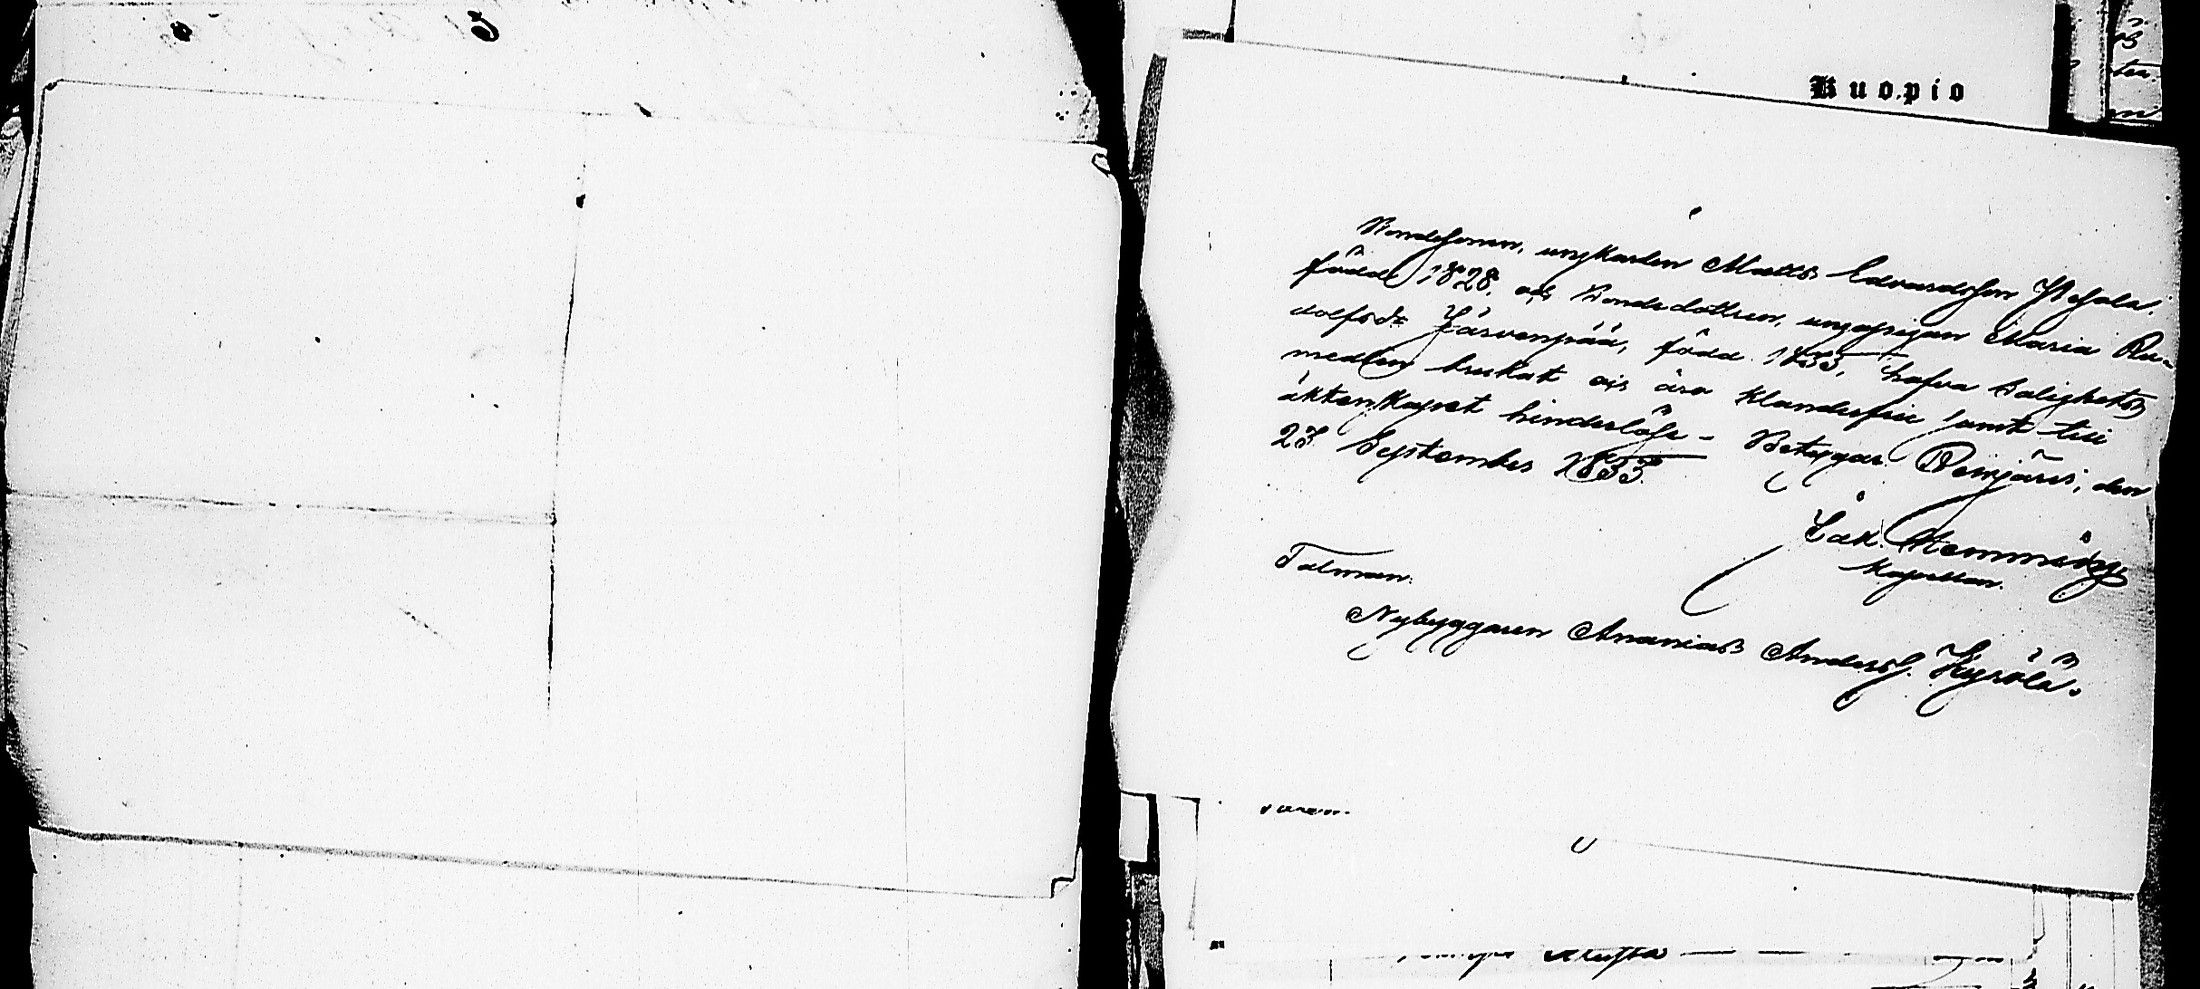 Kuopio
Bondesonen, ungkarlen Matts Edvardsson Pesola,
född 1828, och Bondedottren, ungapigan Maria Ru-
dolfsdr Järvenpää, född 1833, hafva Salighets
medlen brukat och äro klanderfrie samt till
äktenskapet hinderlöse - Betygar Perijärvi, den
23 September 1855.
Kapellan.
Talman
Nybyggaren Ananias Anderss. Kyrölä.